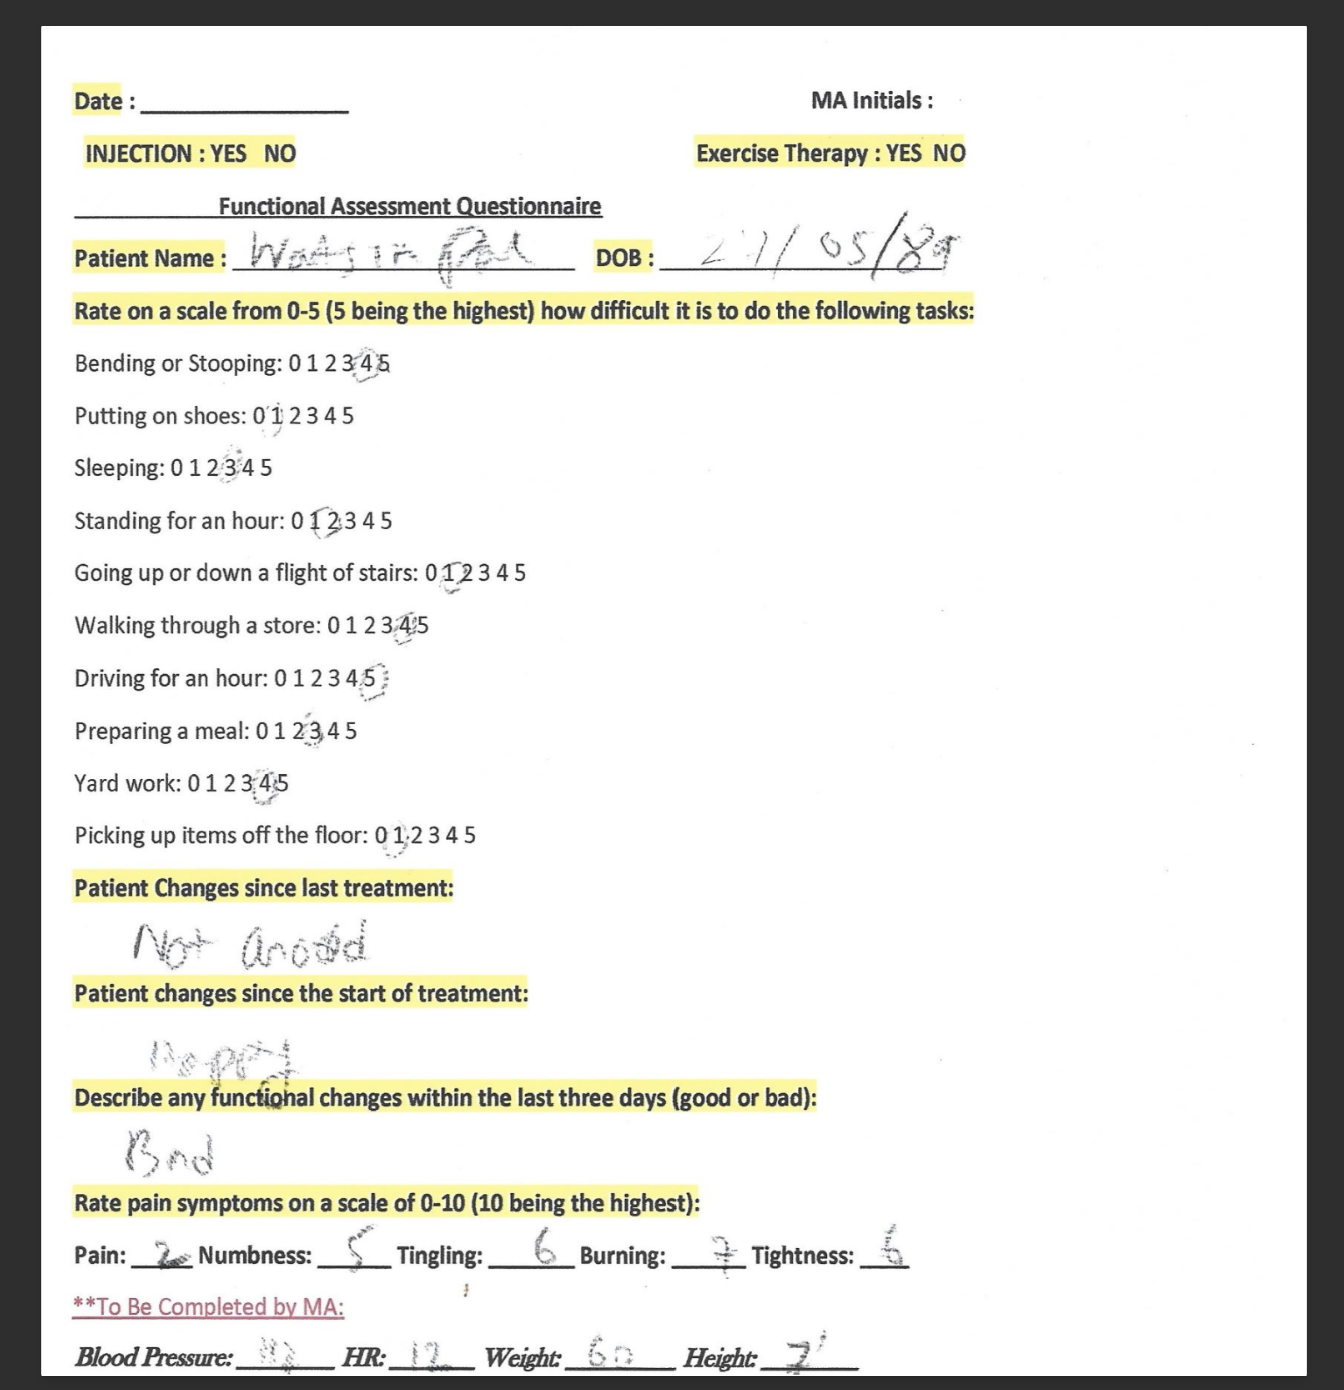 Date : MA Initials :
INJECTION : YES NO Exercise Therapy : YES NO
Functional Assessment Questionnaire
Patient Name : DOB : 27/05/89
Rate on a scale from 0-5 (5 being the highest) how difficult it is to do the following tasks:
Bending or Stooping: 0 1 2 3 4 5
Putting on shoes: 0 1 2 3 4 5
Sleeping: 0 1 2 3 4 5
Standing for an hour: 0 1 2 3 4 5
Going up or down a flight of stairs: 0 1 2 3 4 5
Walking through a store: 0 1 2 3 4 5
Driving for an hour: 0 1 2 3 4 5
Preparing a meal: 0 1 2 3 4 5
Yard work: 0 1 2 3 4 5
Picking up items off the floor: 0 1 2 3 4 5
Patient Changes since last treatment:
Not
Patient changes since the start of treatment:
Describe any functional changes within the last three days (good or bad):
Rate pain symptoms on a scale of 0-10 (10 being the highest):
Pain: 2 Numbness: 5 Tingling: 6 Burning: 7 Tightness: 6
**To Be Completed by MA:
Blood Pressure: HR: 12 Weight: 60 Height: 7'